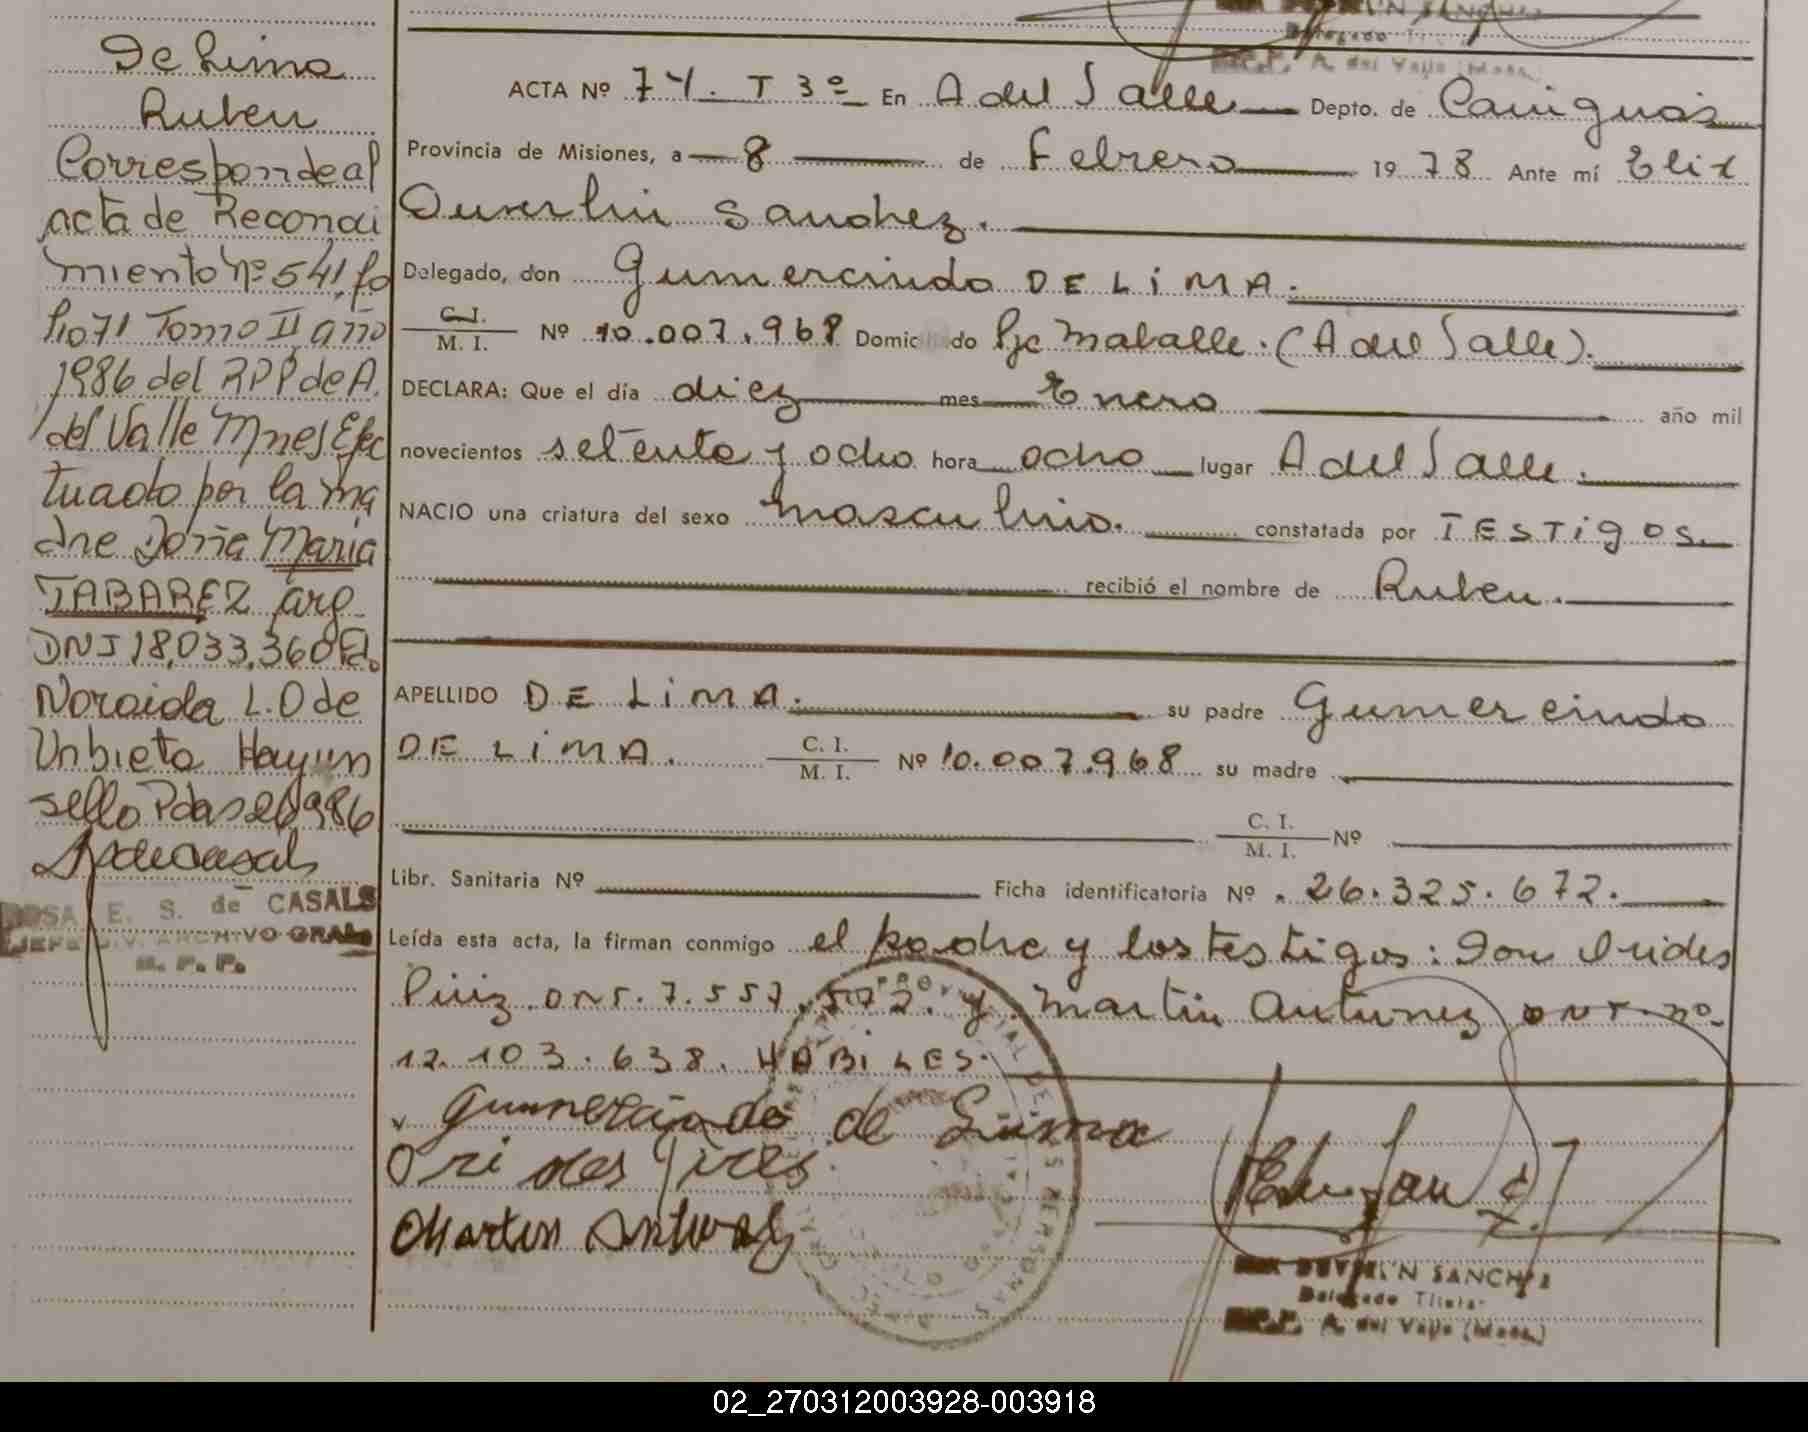 De Lima
Ruben
Corresponde al
acta de Reconoci
miento nº 541, fo
lio 71 Tomo II año
1986 del RPP de A.
del Valle Mnes Efec
tuado por la ma
dre Doña Maria
TABAREZ arg
DNI 18.033.360 Fd.
Noraida L. O de
Urbieta Hay un
sello Pdas 26 986
ROSA E. S. de CASALS
JEFE DIV. ARCHIVO GRAL
R. P. P.
SANCHEZ
Delegado
A. del Valle (Mnes.)
ACTA Nº 74. T 3º En A del Valle Depto. de Cainguas
Provincia de Misiones, a 8 de Febrero 1978 Ante mí Elix
Duverlin Sanchez.
Delegado, don Gumercindo DE LiMA.
C. I. / M. I. Nº 10.007.968 Domiciliado Pje Maballe. (A del Valle).
DECLARA: Que el día diez mes Enero año mil
novecientos setenta y ocho hora ocho lugar A del Valle.
NACIO una criatura del sexo masculino. constatada por TESTigos.
recibió el nombre de Ruben.
APELLIDO DE LiMA. su padre Gumercindo
DE LiMA. C. I. / M. I. Nº 10.007.968 su madre
C. I. / M. I. Nº
Libr. Sanitaria Nº Ficha identificatoria Nº 26.325.672.
Leída esta acta, la firman conmigo el padre y los testigos: Don Orides
Piriz DNI. 7.557.572. y Martin Antunez DNI. nº
12.103.638. HABiLES.
Gumercindo de Lima
Orides Pires
Martin Antunez
SANCHEZ
Delegado Titular
R.P.P. A. del Valle (Mnes.)
02_270312003928-003918